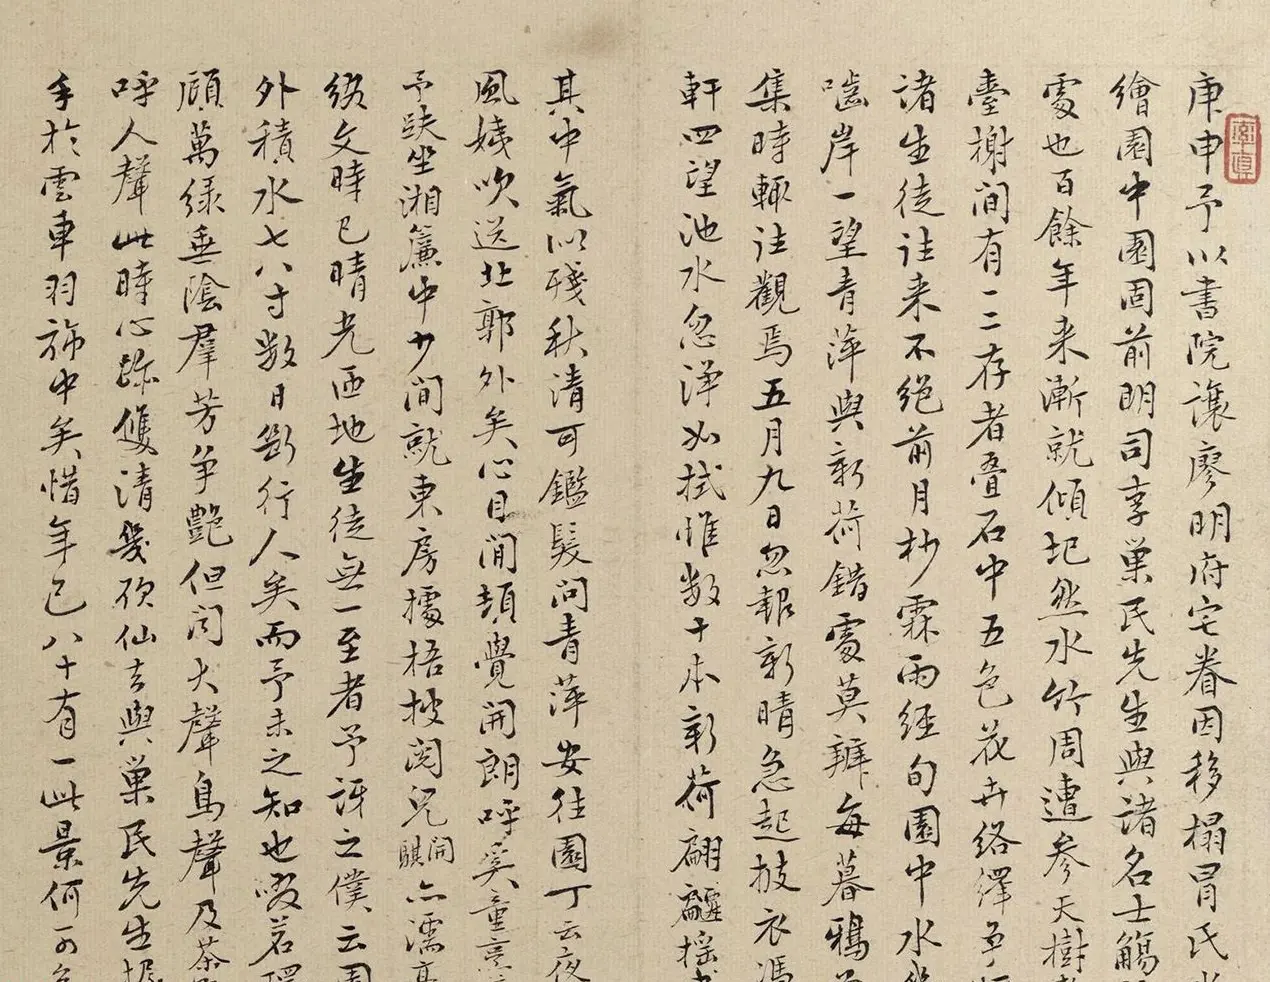 庚申予以書院讓廖明府宅眷因移榻冒氏水
繪園中園固前明司李巢民先生與諸名士觴
處也百餘年来漸就傾圮然水竹周遭参天樹
臺榭間有一二存者叠石中五色花卉絡繹争
諸生徒往来不絕前月杪霖雨経旬園中水
嚙岸一望青萍與新荷錯處莫辨每暮鴉
集時輒往觀焉五月九日忽報新晴急起披衣馮
軒四望池水忽淨如拭惟數十本新荷翩躚揺
其中氣似殘秋清可鑑髮问青萍安往園丁云夜
風姨吹送北郭外矣心目間頓覺開朗呼奚童
予趺坐湘簾中少间就東房據梧披阅兒開騏亦濡
文時已晴光匝地生徒無一至者予訝之僕云園
外積水七八寸数日断行人矣而予未之知也啜茗環
顧萬緑垂陰羣芳争艷但闻大聲鳥聲及茶
呼人聲此時心跡雙清幾欲仙去與巢民先生握
手於雲車羽旆中矣惜年已八十有一此景何可